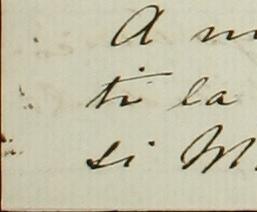 A m
ti la
si M.